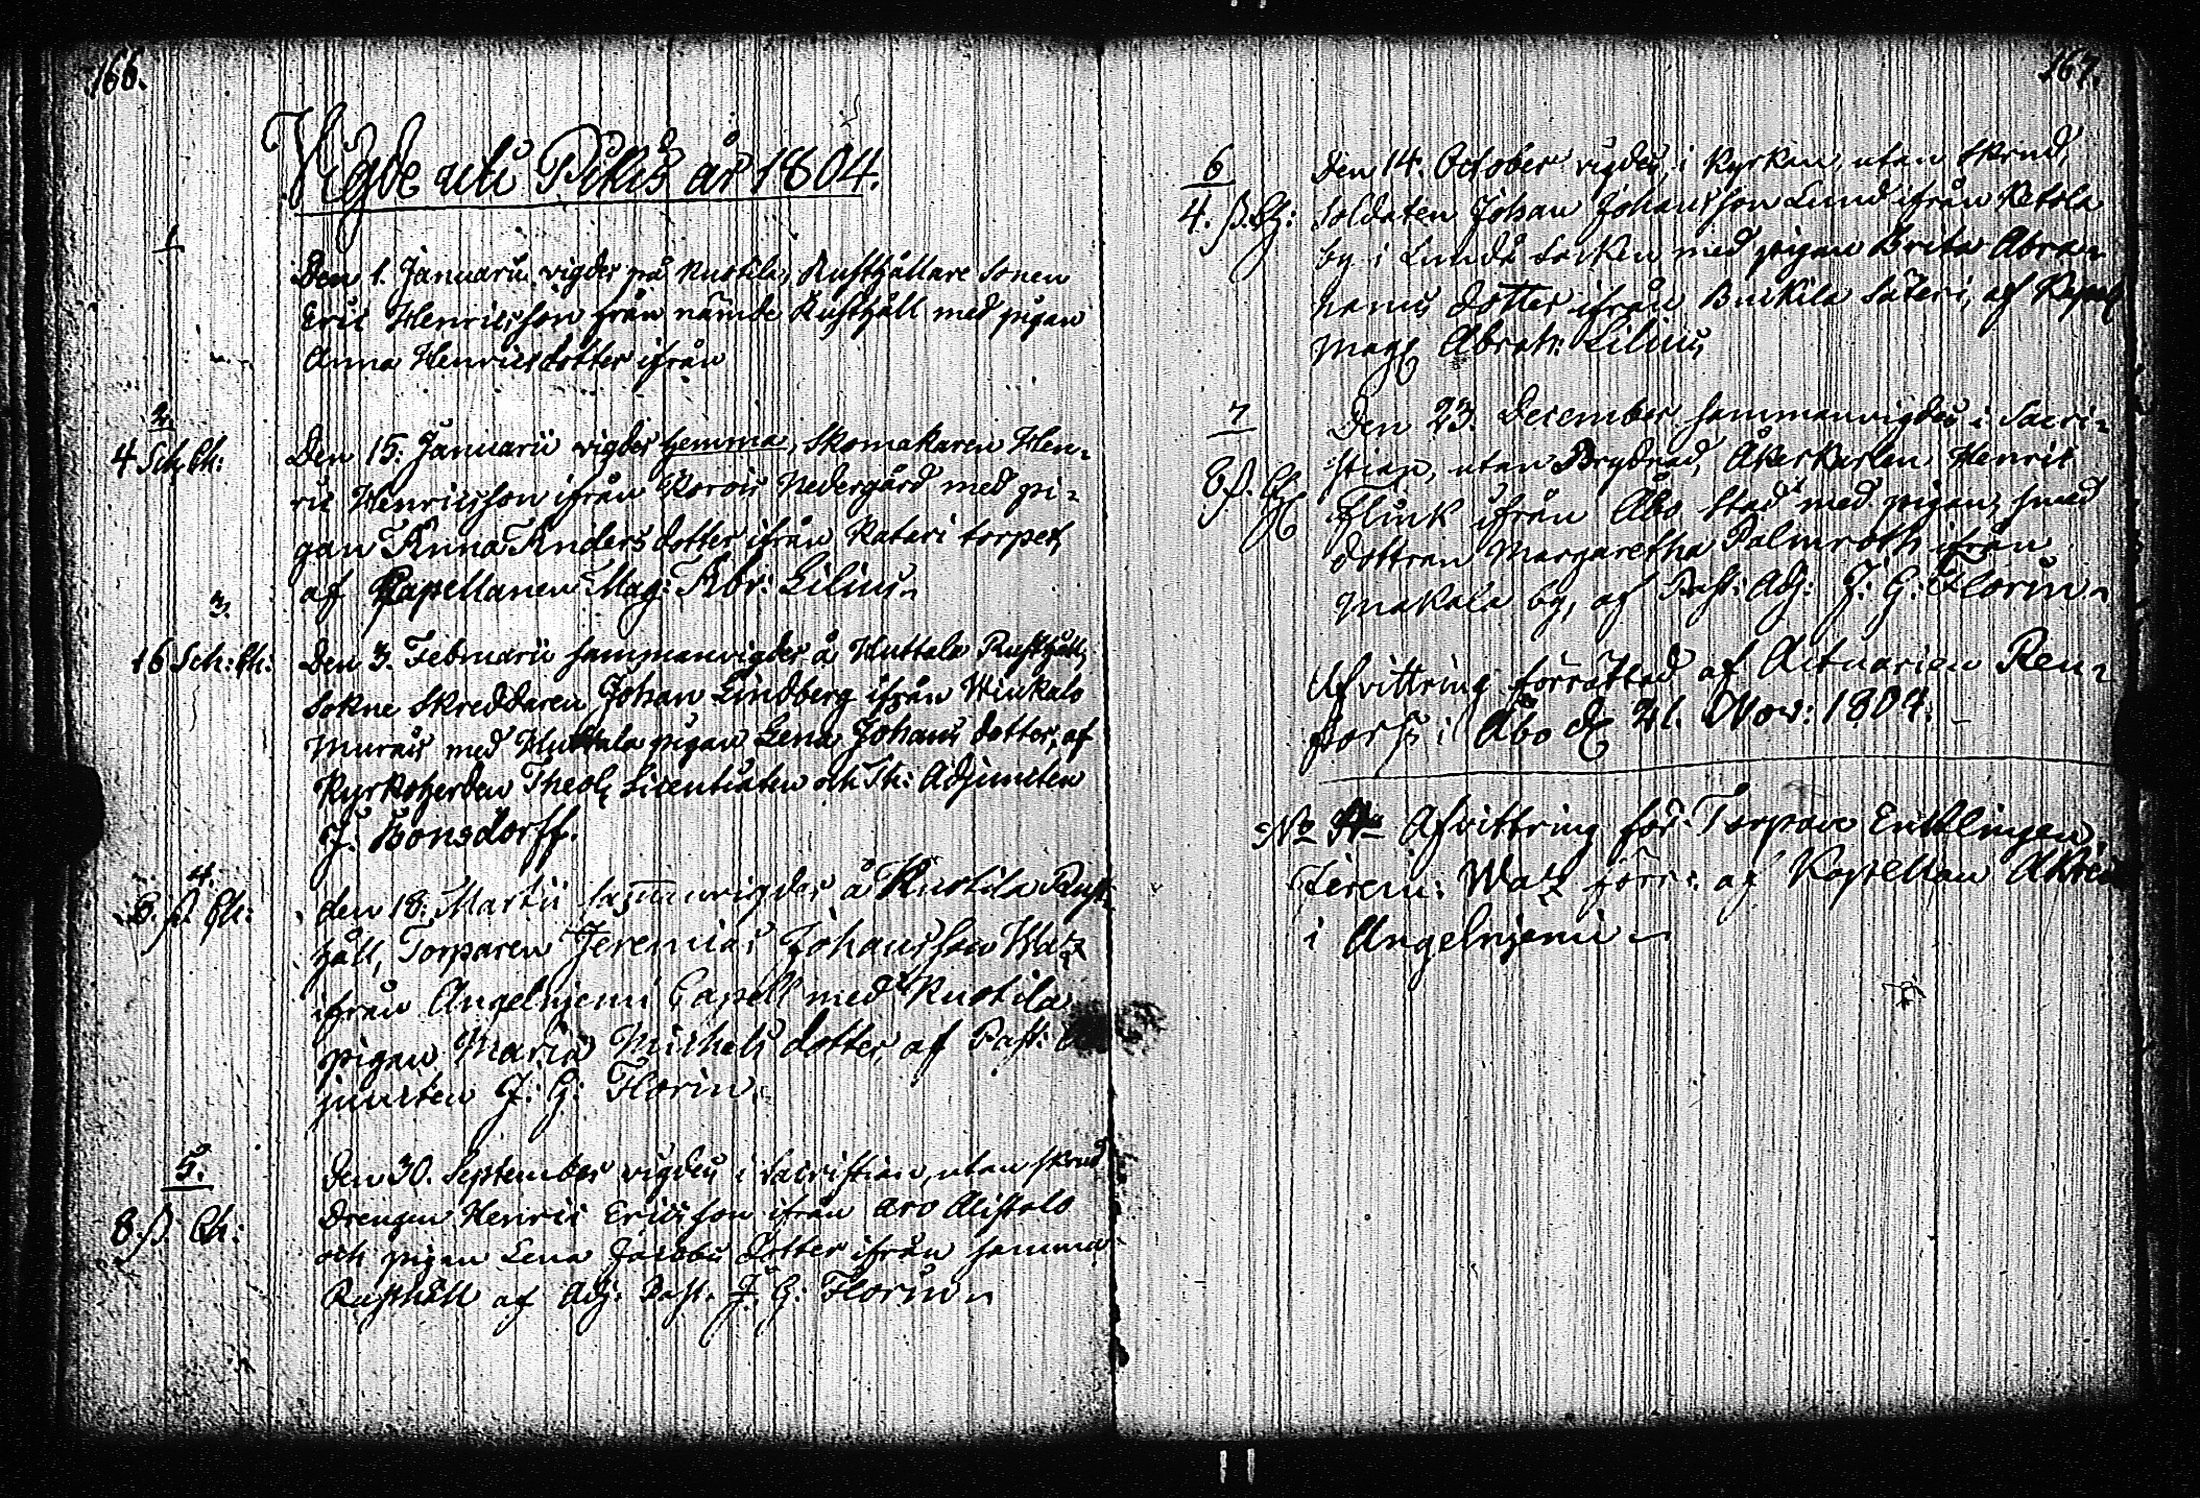 166.
Vigde uti Pikis år 1804.
1
Den 1. Januarii vigdes på Rustila, Rusthållare Sonen
Eric Henricsson från nämde Rusthåll med pigan
Anna Henricsdotter ifrån
2
4 Sch: Ch:
Den 15. Januarii vigdes hemma, Skomakaren Hen-
ric Henricsson ifrån Korois Nedergård med pi-
gan Anna Andersdotter ifrån Katari torpet,
af Capellanen Mag: Abr: Lilius
3.
16 Sch: Ch:
Den 3. Februarii sammanvigdes å Huttala Rusthåll,
Sokne Skreddaren Johan Lindberg ifrån
med Huttala pigan Lena Johans dotter, af
Kyrkoherden Theol. Licentiaten och Th: Adjuncten
J. Bonsdorff.
4.
8. ß. Ch:
den 18. Martii sammanvigdes å Rustila Rust-
håll, Torparen Jeremias Johansson Watz
ifrån Angelniemi Capell med Rustila
pigan Maria Michels dotter, af Past:
juncten J. G: Florin.
5.
8 ß. Ch:
Den 30. September vigdes i Sacristian, utan skrud
Drengen Henric Ericsson ifrån Aro Alistalo
och pigan Lena Jacobs Dotter ifrån samma
Rusthåll af Adj. Past. J. G: Florin
167.
6
4. ß. Ch:
Den 14. October vigdes i Kyrkan, utan skrud,
Soldaten Johan Johansson Lund ifrån Ketola
by i Lundå Socken med pigan Brita Abra-
hams dotter ifrån Buskila Säteri, af Capel.
Mag. Abrah: Lilius
7
8 ß. Ch:
Den 23. December sammanvigdes i Sacri-
stian, utan Brydnad, Åkerkarlen Henric
Flink ifrån Åbo Stad med pigan, smed
dottran Margaretha Palmroth ifrån
Makala by, af Past: Adj: J: G: Florin
Afvittring förrättad af Actuarien Ren-
fors i Åbo d. 21. Nov: 1804.
No 4. Afvittring för Torpare Enklingen
Jerem: Watz förr: af Kapellan
i Angelniemi